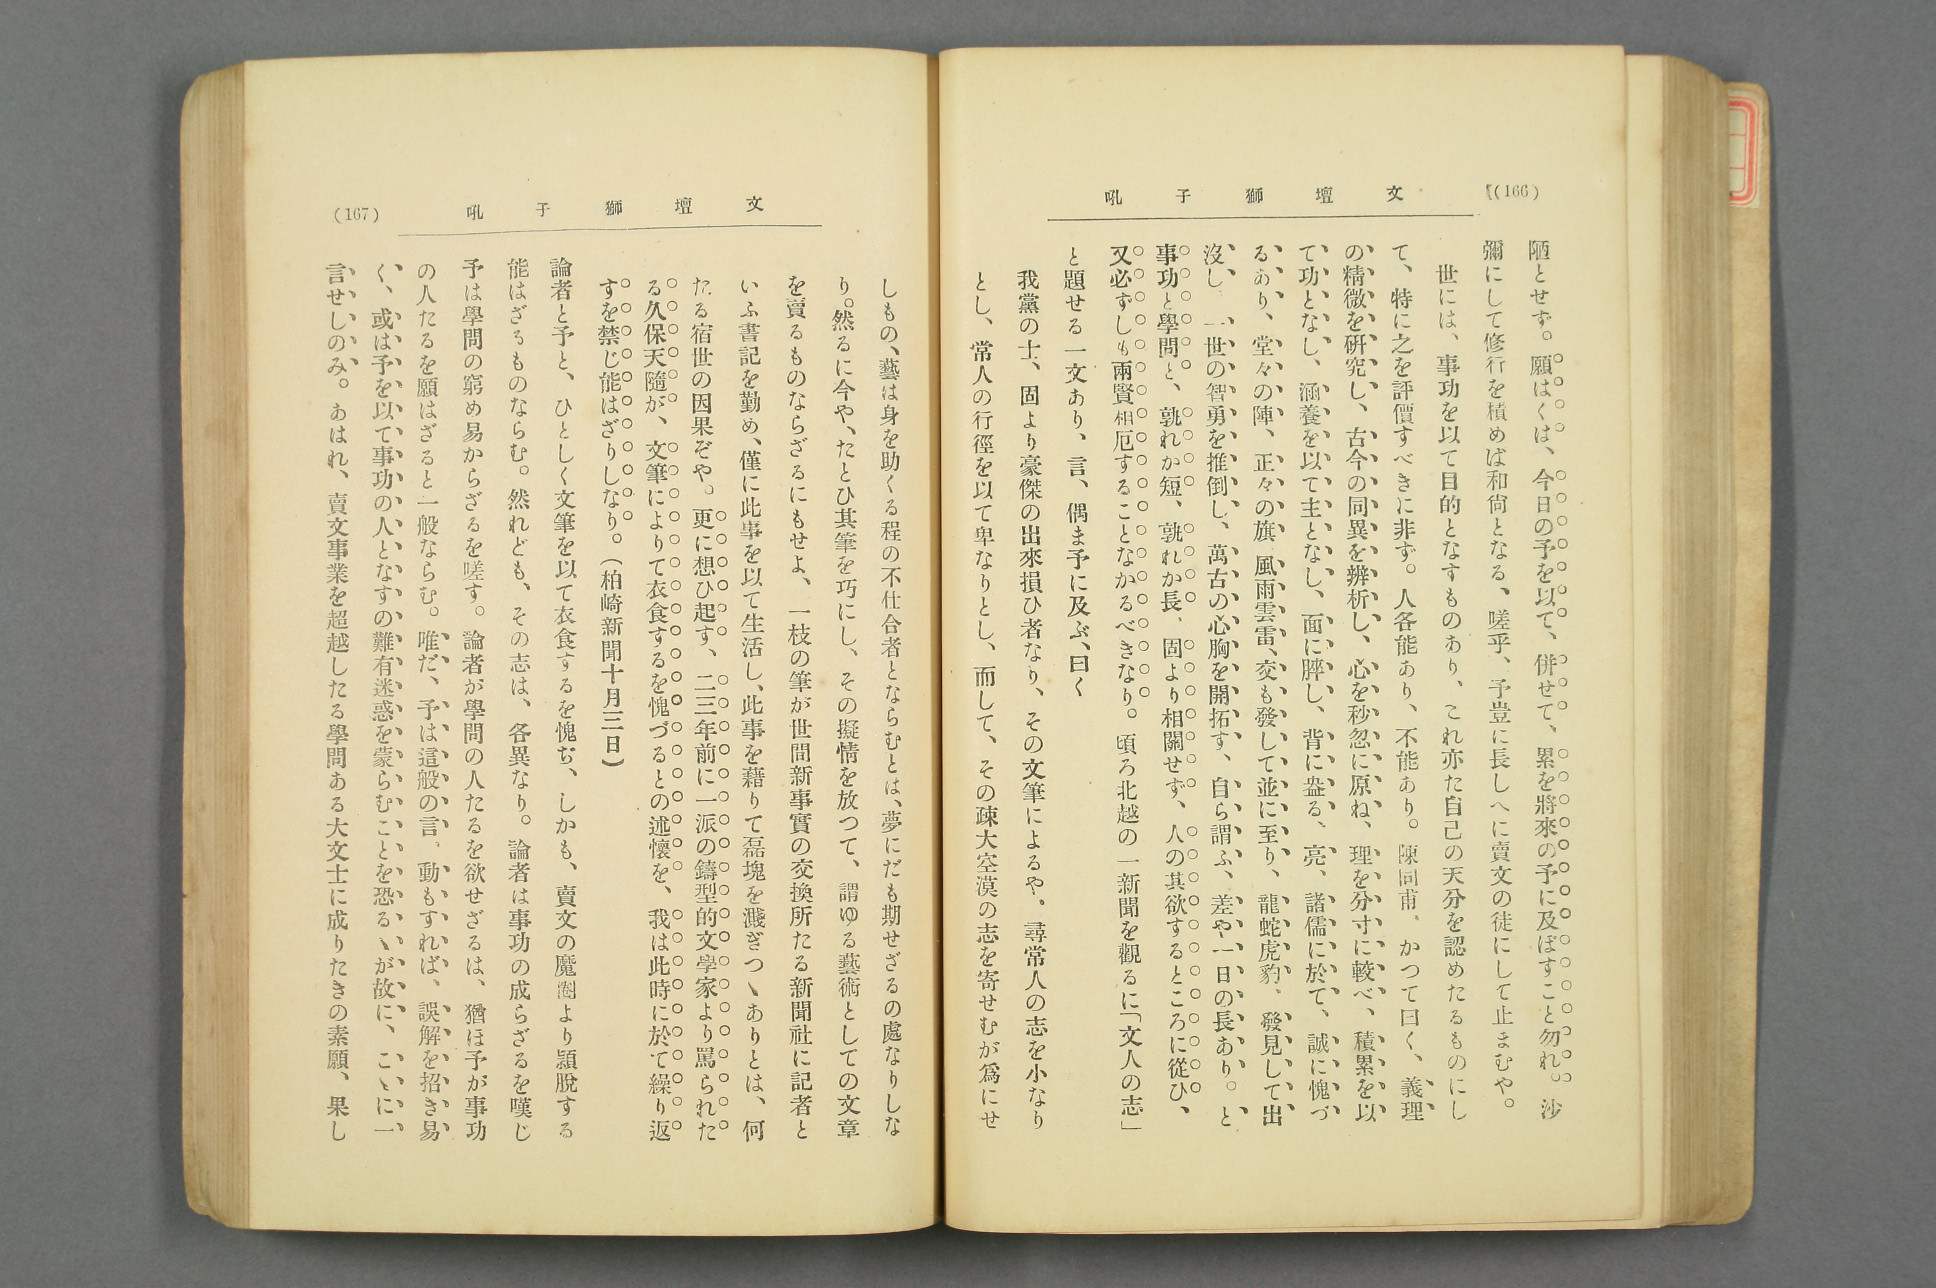 (166)
文壇獅子吼
陋とせず。願はくは、今日の予を以て、併せて、累を將來の予に及ぼすこと勿れ。沙
彌にして修行を積めば和尙となる、嗟乎、予豈に長しへに賣文の徒にして止まむや。
世には、事功を以て目的となすものあり、これ亦た自己の天分を認めたるものにし
て、特に之を評價すべきに非ず。人各能あり、不能あり。陳同甫、かつて曰く、義理
の精微を硏究し、古今の同異を辨析し、心を秒忽に原ね、理を分寸に較べ、積累を以
て功となし、涵養を以て主となし、面に睟し、背に盎る、亮、諸儒に於て、誠に愧づ
るあり、堂々の陣、正々の旗、風雨雲雷、交も發して並に至り、龍蛇虎豹、發見して出
沒し、一世の智勇を推倒し、萬古の心胸を開拓す、自ら謂ふ、差や一日の長あり。と
事功と學問と、孰れか短、孰れか長、固より相關せず、人の其欲するところに從ひ、
又必ずしも兩賢相厄することなかるべきなり。頃ろ北越の一新聞を觀るに「文人の志」
と題せる一文あり、言、偶ま予に及ぶ、曰く
我黨の士、固より豪傑の出來損ひ者なり、その文筆によるや、尋常人の志を小なり
とし、常人の行徑を以て卑なりとし、而して、その疎大空漠の志を寄せむが爲にせ
文壇獅子吼
(167)
しもの、藝は身を助くる程の不仕合者とならむとは、夢にだも期せざるの處なりしな
り。然るに今や、たとひ其筆を巧にし、その擬情を放つて、謂ゆる藝術としての文章
を賣るものならざるにもせよ、一枝の筆が世間新事實の交換所たる新聞社に記者と
いふ書記を勤め、僅に此事を以て生活し、此事を藉りて磊塊を濺ぎつゝありとは、何
たる宿世の因果ぞや。更に想ひ起す、二三年前に一派の鑄型的文學家より罵られた
る久保天隨が、文筆によりて衣食するを愧づるとの述懷を、我は此時に於て繰り返
すを禁じ能はざりしなり。(柏崎新聞十月三日)
論者と予と、ひとしく文筆を以て衣食するを愧ぢ、しかも、賣文の魔圈より頴脫する
能はざるものならむ。然れども、その志は、各異なり。論者は事功の成らざるを嘆じ
予は學問の窮め易からざるを嗟す。論者が學問の人たるを欲せざるは、猶ほ予が事功
の人たるを願はざると一般ならむ。唯だ、予は這般の言、動もすれば、誤解を招き易
く、或は予を以て事功の人となすの難有迷惑を蒙らむことを恐るゝが故に、こゝに一
言せしのみ。あはれ、賣文事業を超越したる學問ある大文士に成りたきの素願、果し